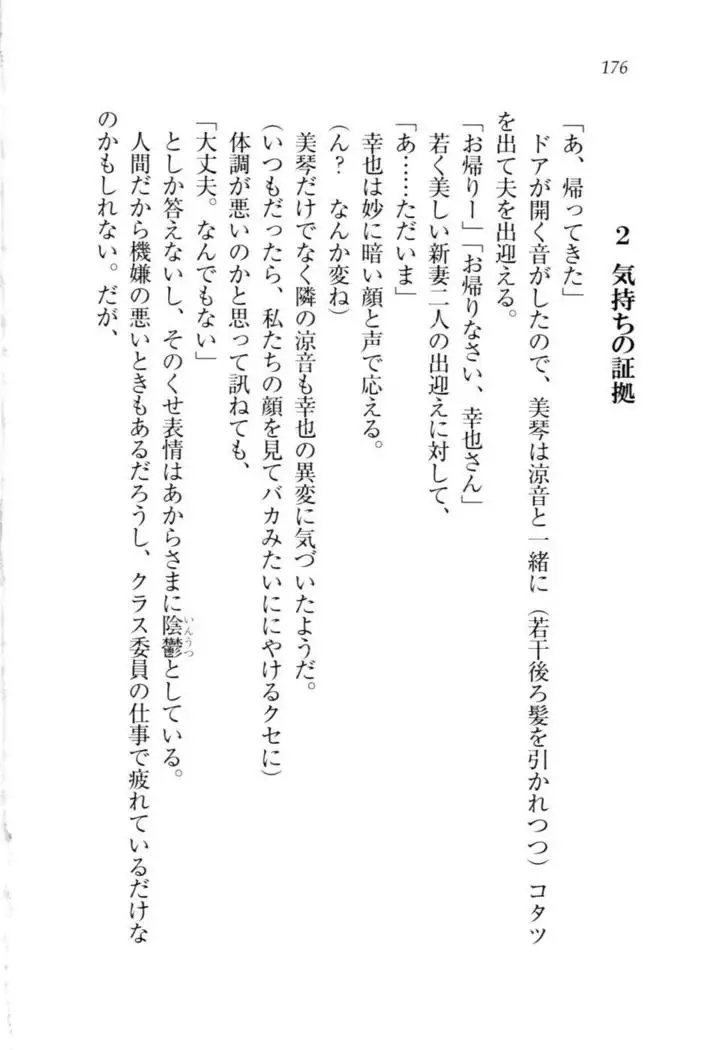 176
2　気持ちの証拠
「あ、帰ってきた」
　ドアが開く音がしたので、美琴は涼音と一緒に（若干後ろ髪を引かれつつ）コタツ
を出て夫を出迎える。
「お帰りー」「お帰りなさい、幸也さん」
　若く美しい新妻二人の出迎えに対して、
「あ……ただいま」
　幸也は妙に暗い顔と声で応える。
（ん？　なんか変ね）
　美琴だけでなく隣の涼音も幸也の異変に気づいたようだ。
（いつもだったら、私たちの顔を見てバカみたいににやけるクセに）
　体調が悪いのかと思って訊ねても、
「大丈夫。なんでもない」
　としか答えないし、そのくせ表情はあからさまに陰鬱いんうつとしている。
　人間だから機嫌の悪いときもあるだろうし、クラス委員の仕事で疲れているだけな
のかもしれない。だが、